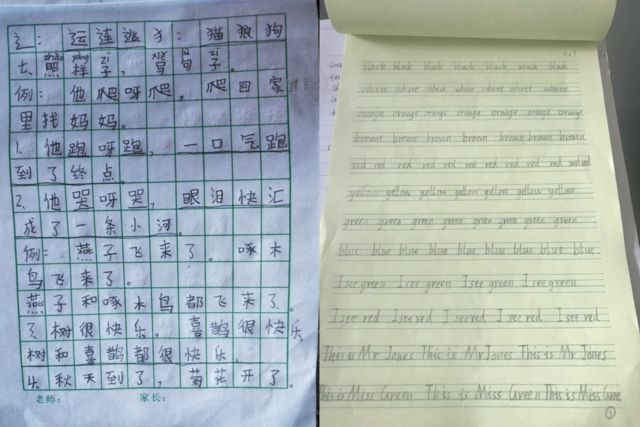 辶： 运 连 逃 犭： 猫 狼 狗
zhào yàng zi xiě jù zi
七、照 样 子， 写 句 子。
例： 他 爬 呀 爬， 爬 回 家
里 找 妈 妈。
1. 他 跑 呀 跑， 一 口 气 跑
到 了 终 点。
2. 他 哭 呀 哭， 眼 泪 快 汇
成 了 一 条 小 河。
例： 燕 子 飞 来 了。 啄 木
鸟 飞 来 了。
燕 子 和 啄 木 鸟 都 飞 来 了。
树 很 快 乐。 喜 鹊 很 快 乐
树 和 喜 鹊 都 很 快 乐。
秋 天 到 了， 菊 花 开 了。
老师： 家长：
black black black black black black black
white white white white white white white
orange orange orange orange orange orange
brown brown brown brown brown brown
red red red red red red red red red red
yellow yellow yellow yellow yellow yellow
green green green green green green green
blue blue blue blue blue blue blue blue
I see green I see green I see green I see green
I see red I see red I see red I see red I see red
This is Mr Jones This is Mr Jones This is Mr Jones
This is Miss Green This is Miss Green This is Miss Gree
①